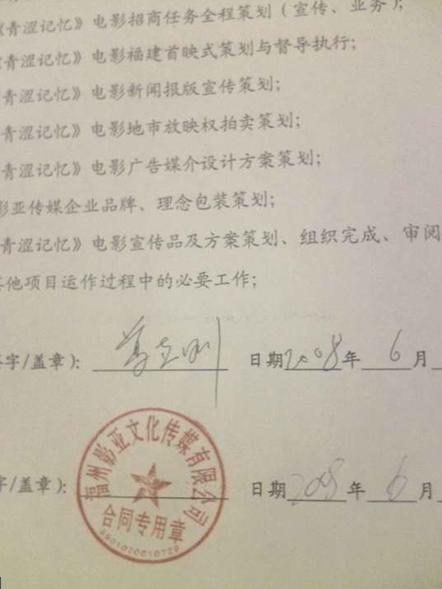 《青涩记忆》电影招商任务全程策划(宣传、业务);
青涩记忆》电影福建首映式策划与督导执行;
青涩记忆》电影新闻报版宣传策划;
青涩记忆》电影地市放映权拍卖策划;
青涩记忆》电影广告媒介设计方案策划;
影亚传媒企业品牌、理念包装策划;
青涩记忆》电影宣传品及方案策划、组织完成、审阅
其他项目运作过程中的必要工作;
签字/盖章): 日期2008年 6 月
字/盖章): 日期2008年 6 月
福州影亚文化传媒有限公司
合同专用章